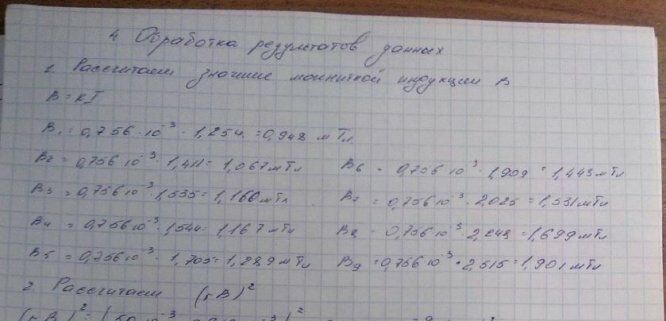 4 Обработка результатов данных
1. Рассчитаем значение магнитной индукции B
B=кI
B₁=0,756·10⁻³·1,254=0,948 мТл
B₂=0,756·10⁻³·1,411=1,067мТл
B₃=0,756·10⁻³·1,535=1,160мТл
B₄=0,756·10⁻³·1,544=1,167мТл
B₅=0,756·10⁻³·1,705=1,289мТл
B₆=0,756·10⁻³·1,909=1,443мТл
B₇=0,756·10⁻³·2,025=1,531мТл
B₈=0,756·10⁻³·2,248=1,699мТл
B₉=0,756·10⁻³·2,515=1,901мТл
2 Рассчитаем (rB)²